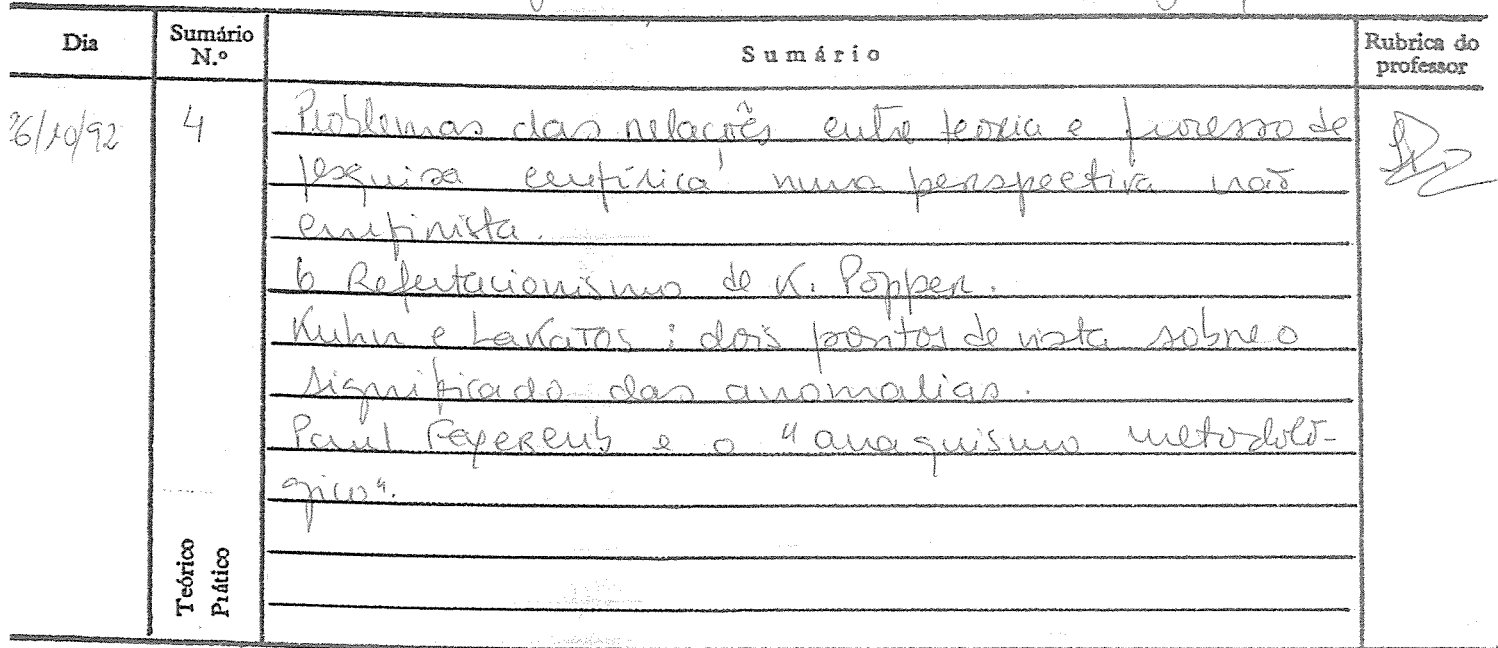 Dia
Sumário N.º
Sumário
Rubrica do professor
26/10/92
4
Problemas das relações entre teoria e processo de
pesquisa empírica numa perspectiva não
empirista.
O Refutacionismo de K. Popper.
Kuhn e Lakatos: dois pontos de vista sobre o
significado das anomalias.
Paul Feyerenb e o "anaquismo metodoló-
gico".
Teórico
Prático